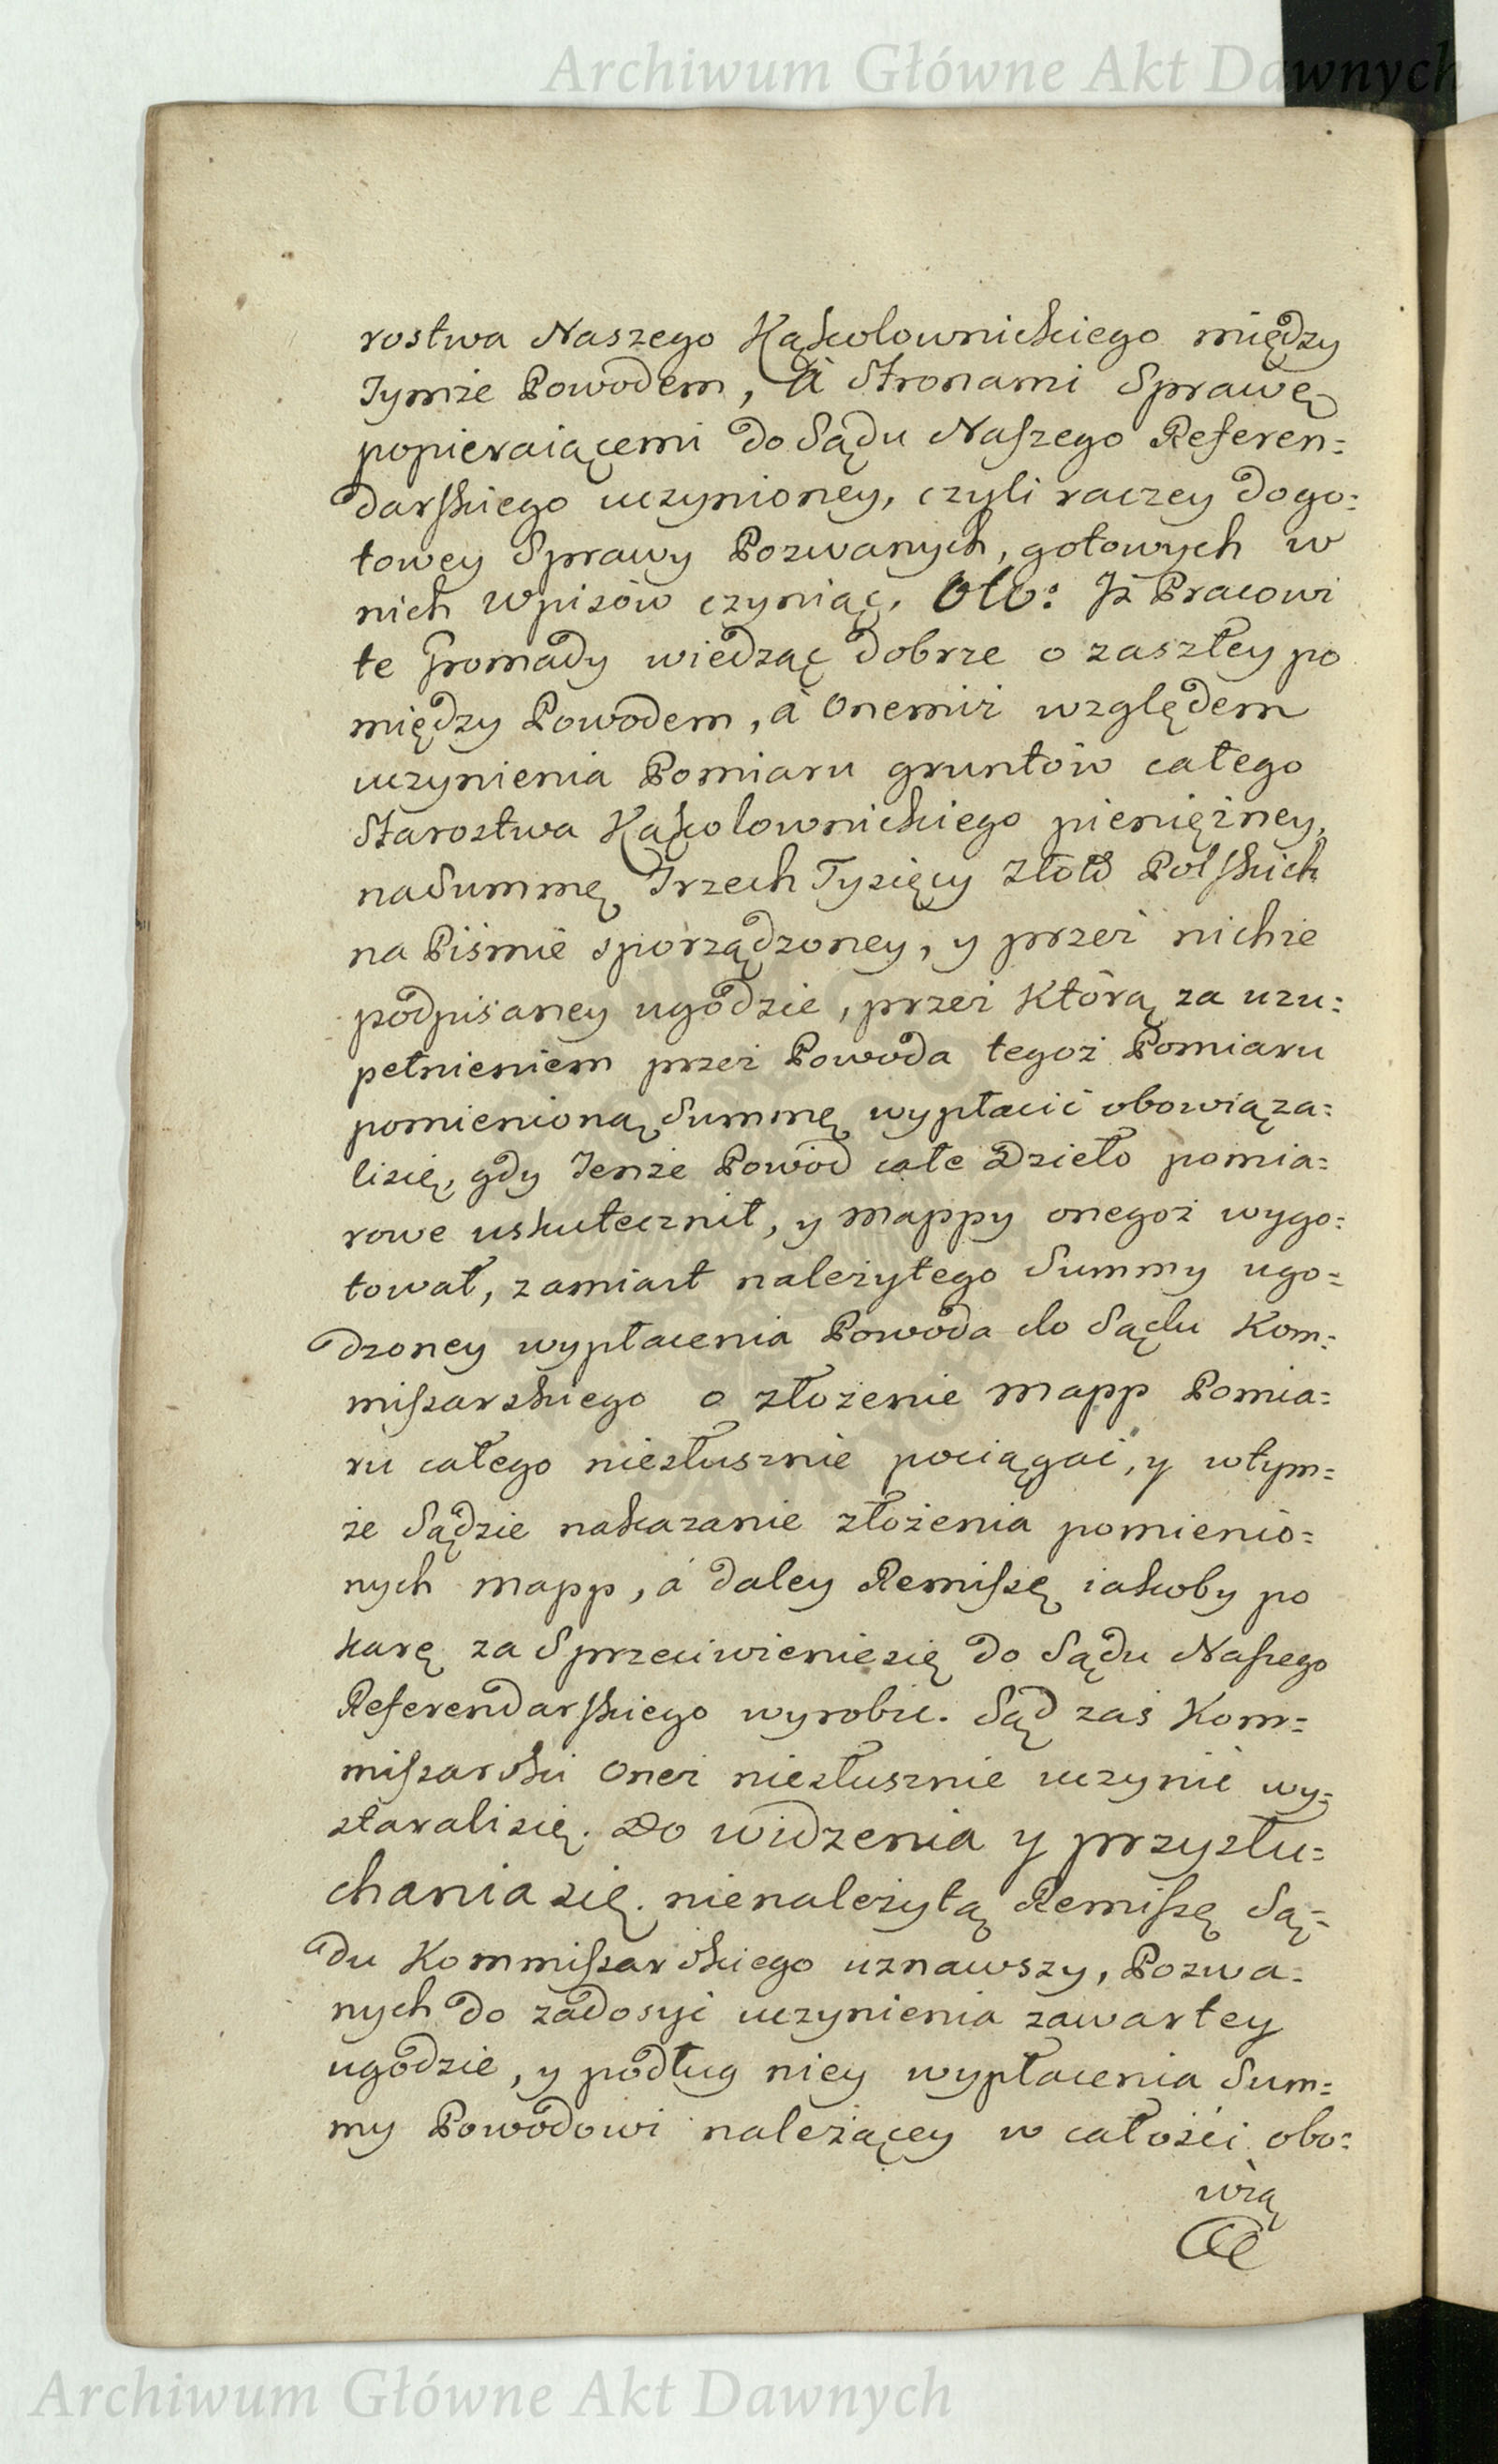 Archiwum Główne Akt Dawnych
rostwa Naszego Kąkolownickiego między
Tymże Powodem, à Stronami Sprawę
popieraiącemi do Sądu Naszego Referen=
darskiego uczynioney, czyli raczey dogo=
towey Sprawy Pozwanych, gotowych w
nich Wpisów czyniąc. Oto: Jż Pracowi
te Gromady wiedząc dobrze o zaszłey po
między Powodem, à Onemiż względem
uczynienia Pomiaru gruntów całego
Starostwa Kąkolownickiego pieniężney,
na Summę Trzech Tysięcy Złotꝏ Polskich
na Piśmie sporządzoney, y przez nichże
podpisaney ugodzie, przez Którą za uzu=
pełnieniem przez Powoda tegoż Pomiaru
pomienioną Summę wypłacić obowiąza=
lisię, gdy Tenże Powód całe Dzieło pomia=
rowe uskutecznił, y Mappy onegoż wygo=
tował, zamiast należytego Summy ugo=
dzoney wypłacenia Powoda do Sądu Kom=
missarskiego o złożenie Mapp Pomia=
ru całego niesłusznie pociągać, y wtym=
że Sądzie nakazanie złożenia pomienio=
nych Mapp, á daley Remissę iakoby po
karę za Sprzeciwieniesię do Sądu Naszego
Referendarskiego wyrobić. Sąd zaś Kom=
missarski Oneż niesłusznie uczynić wy=
staralisię. Do widzenia y przysłu=
chaniasię. nienależytą Remissę Są=
du Kommissarskiego uznawszy, Pozwa=
nych do zadosyć uczynienia zawartey
ugodzie, y podług niey wypłacenia Sum=
my Powodowi należącey w całości obo=
wią
Archiwum Główne Akt Dawnych